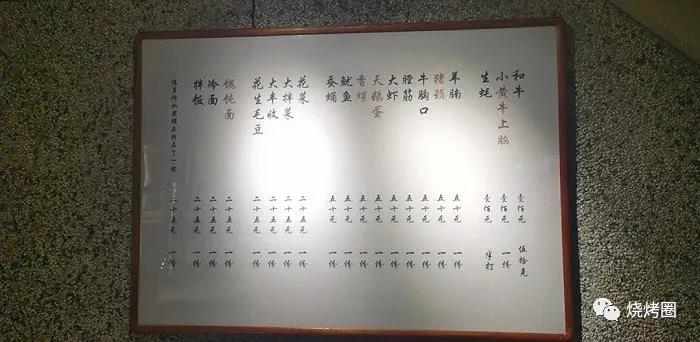 和牛 壹佰元 伍拾克
小黄牛上脑 壹佰元 一份
生蚝 壹佰元 半打
羊腩 五十元 一份
猪颈 五十元 一份
牛胸口 五十元 一份
膛筋 五十元 一份
大虾 五十元 一份
天鹅蛋 五十元 一份
香螺 五十元 一份
鱿鱼 五十元 一份
蚕蛹 五十元 一份
花菜 二十五元 一份
大拌菜 二十五元 一份
大丰收 二十五元 一份
花生毛豆 二十五元 一份
馄饨面 二十五元 一份
冷面 二十五元 一份
拌饭 二十五元 一份
二十五元 一份
烧烤圈